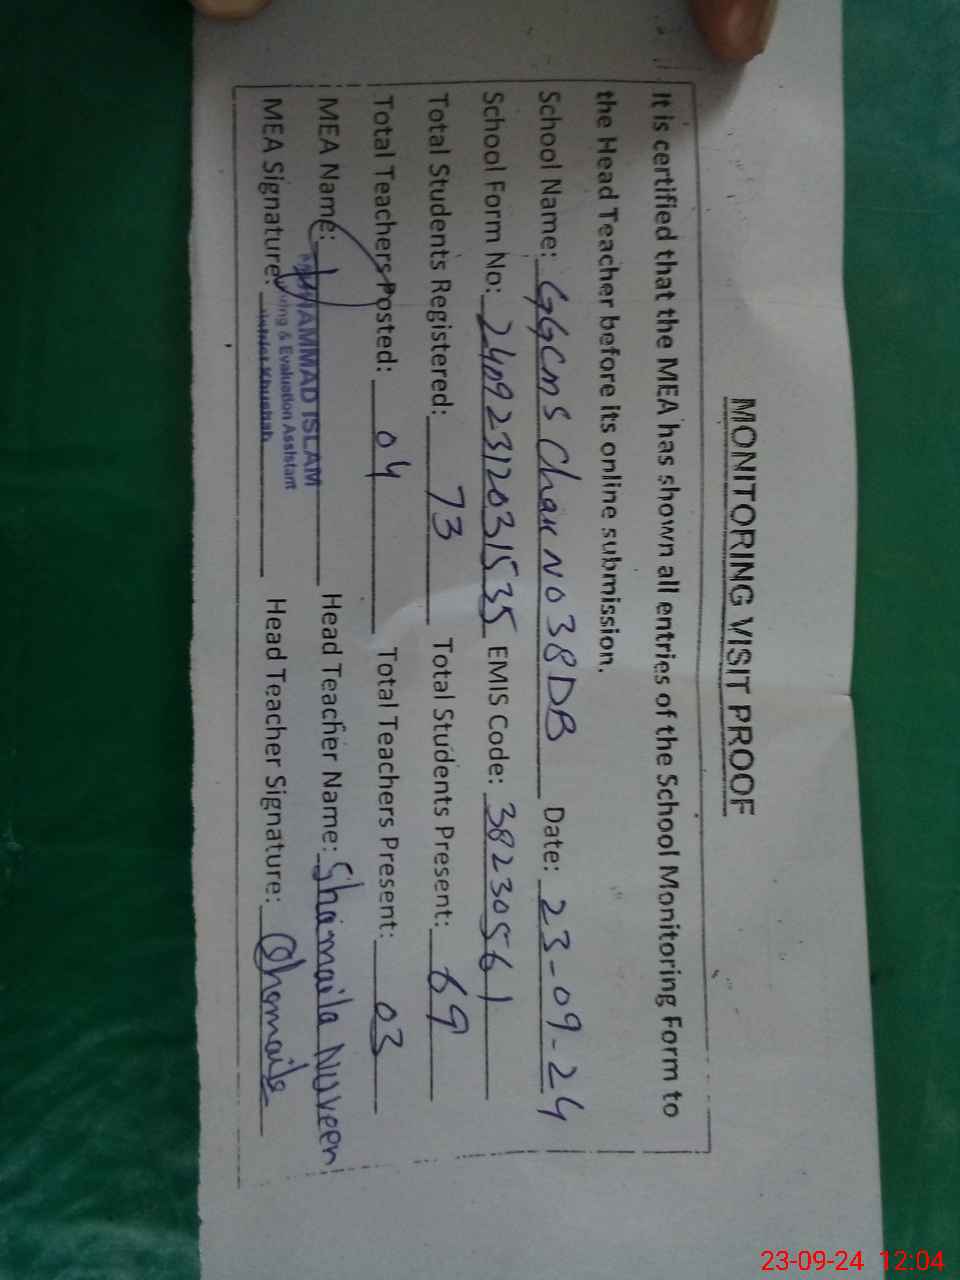 MONITORING VISIT PROOF
It is certified that the MEA has shown all entries of the School Monitoring Form to
the Head Teacher before its online submission.
School Name: GGCMS Chak No 38DB Date: 23-09-24
School Form No: 24092312031535 EMIS Code: 38230561
Total Students Registered: 73 Total Students Present: 69
Total Teachers Posted: 04 Total Teachers Present: 03
MEA Name: MUHAMMAD ISLAM Head Teacher Name: Shamaila Nuveen
& Evaluation Assistant
MEA Signature: District Khushab Head Teacher Signature: Shamaila
23-09-24 12:04